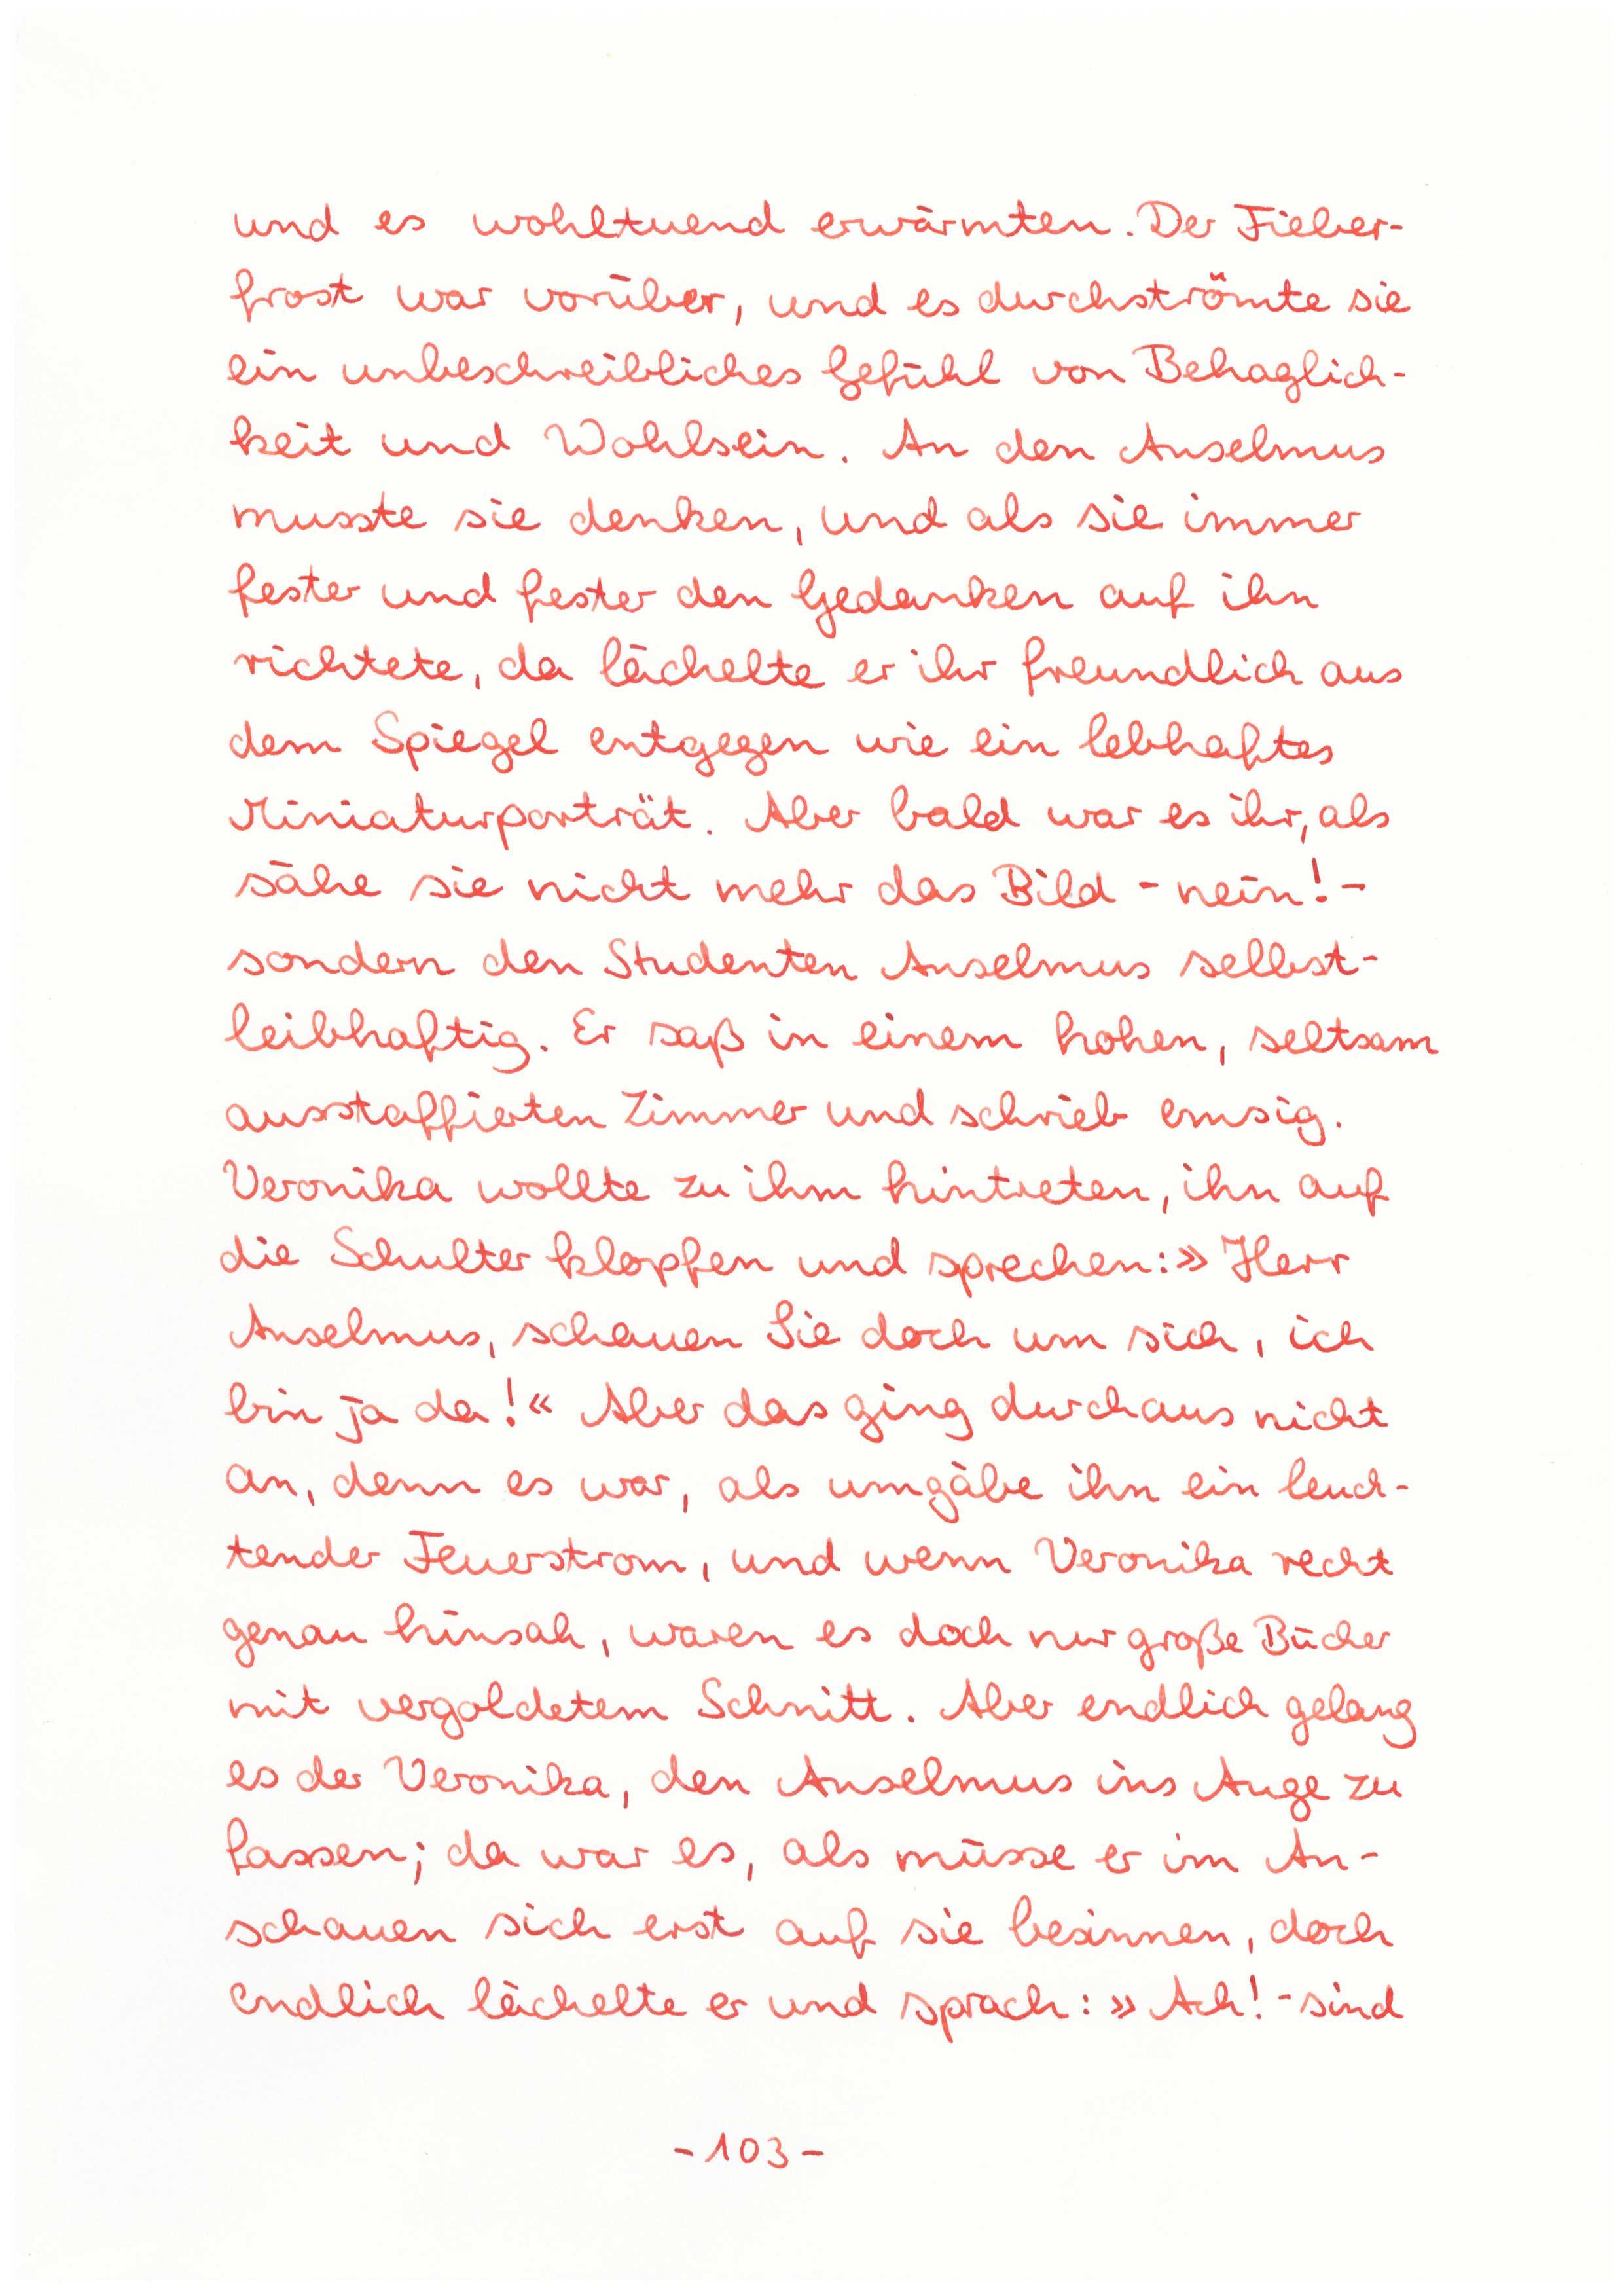 und es wohltuend erwärmten. Der Fieber-
frost war vorüber, und es durchströmte sie
ein unbeschreibliches Gefühl von Behaglich-
keit und Wohlsein. An den Anselmus
musste sie denken, und als sie immer
fester und fester den Gedanken auf ihn
richtete, da lächelte er ihr freundlich aus
dem Spiegel entgegen wie ein lebhaftes
Miniaturporträt. Aber bald war es ihr, als
sähe sie nicht mehr das Bild - nein! -
sondern den Studenten Anselmus selbst-
leibhaftig. Er saß in einem hohen, seltsam
ausstaffierten Zimmer und schrieb emsig.
Veronika wollte zu ihm hintreten, ihn auf
die Schulter klopfen und sprechen: »Herr
Anselmus, schauen Sie doch um sich, ich
bin ja da!« Aber das ging durchaus nicht
an, denn es war, als umgäbe ihn ein leuch-
tender Feuerstrom, und wenn Veronika recht
genau hinsah, waren es doch nur große Bücher
mit vergoldetem Schnitt. Aber endlich gelang
es der Veronika, den Anselmus ins Auge zu
fassen; da war es, als müsse er im An-
schauen sich erst auf sie besinnen, doch
endlich lächelte er und sprach: »Ach! - sind
- 103 -